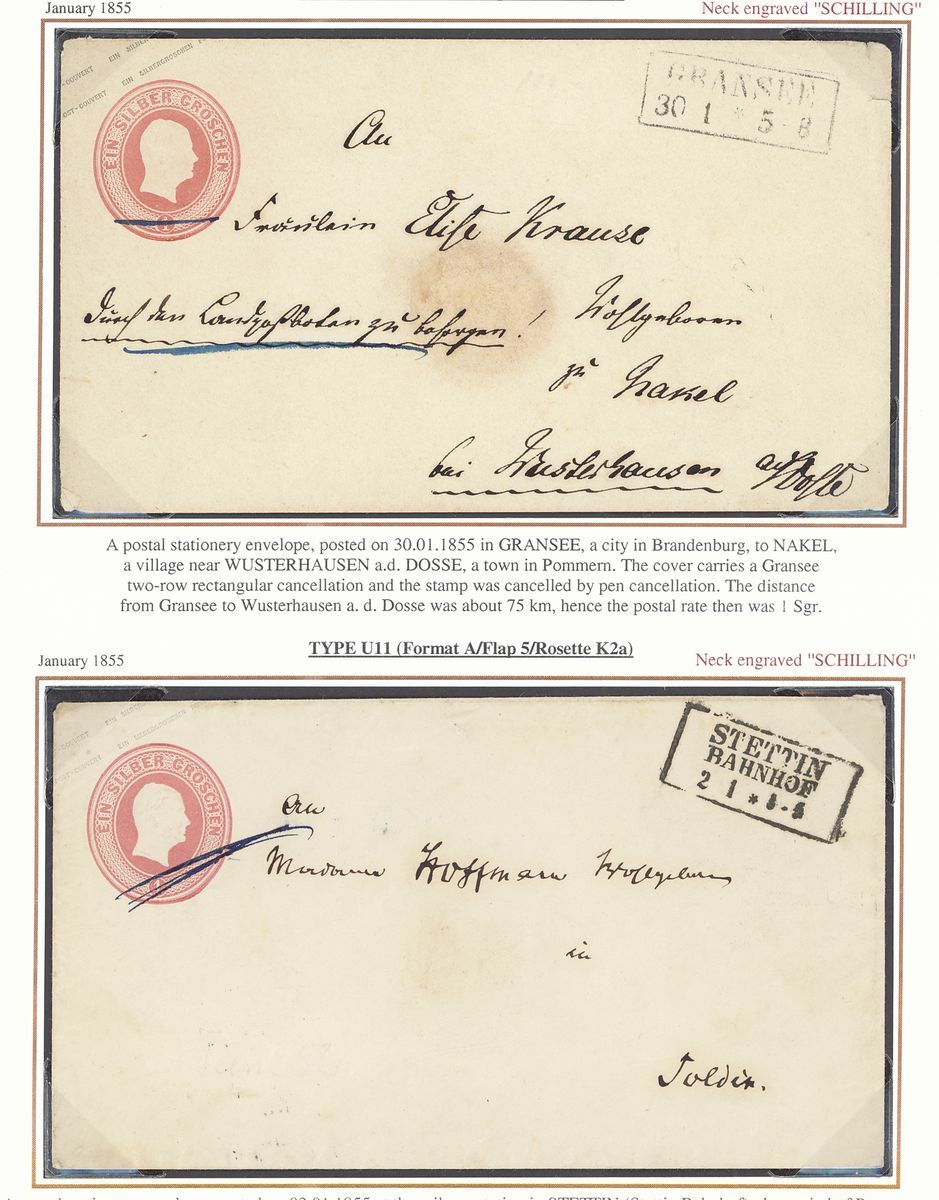 January 1855
Neck engraved "SCHILLING"
EIN SILBERGROSCHEN
POST-COUVERT EIN SILBERGROSCHEN
EIN SILBER GROSCHEN
1
GRANSEE
30 1 * 5-8
An
Fräulein Elise Krause
Wohlgeboren
durch den Landpostboten zu besorgen!
zu Nakel
bei Wusterhausen a/Dosse
A postal stationery envelope, posted on 30.01.1855 in GRANSEE, a city in Brandenburg, to NAKEL,
a village near WUSTERHAUSEN a.d. DOSSE, a town in Pommern. The cover carries a Gransee
two-row rectangular cancellation and the stamp was cancelled by pen cancellation. The distance
from Gransee to Wusterhausen a. d. Dosse was about 75 km, hence the postal rate then was 1 Sgr.
TYPE U11 (Format A/Flap 5/Rosette K2a)
January 1855
Neck engraved "SCHILLING"
EIN SILBERGROSCHEN
EIN SILBER GROSCHEN
STETTIN
BAHNHOF
2 1 *
An
Madame Hoffmann Wohlgeboren
in
Soldin.